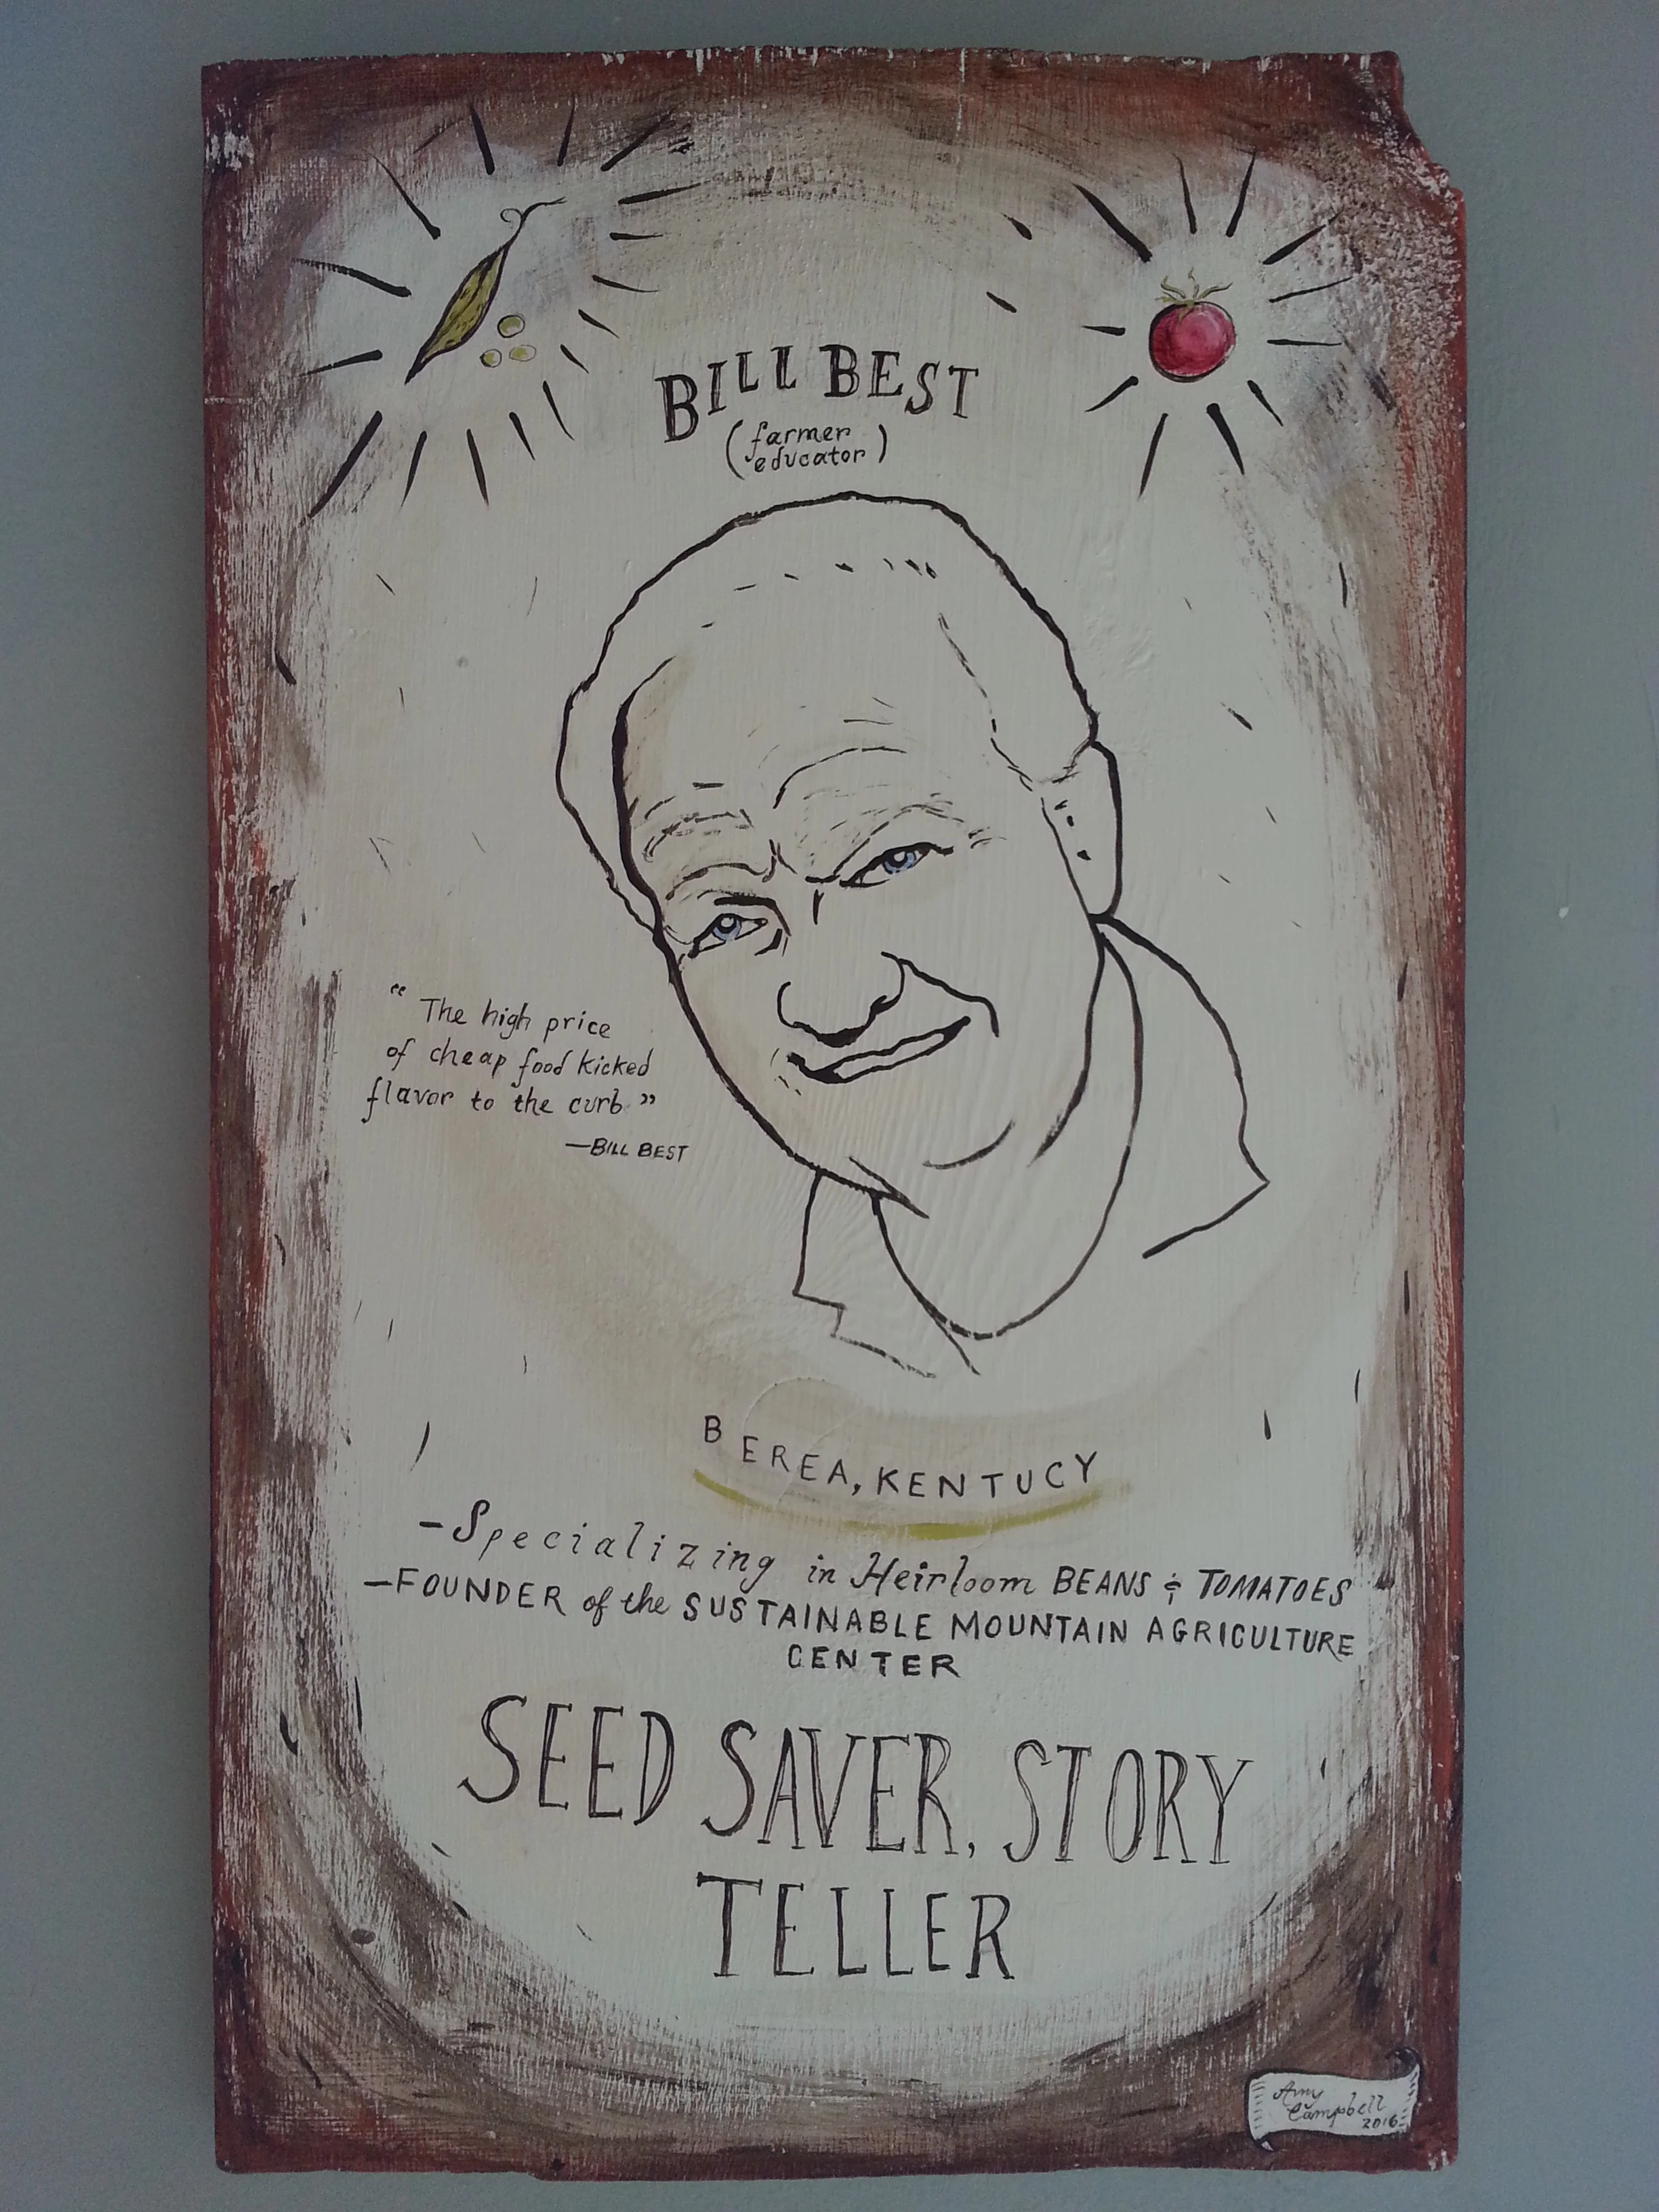 BILL BEST
(farmer
educator)
“The high price
of cheap food kicked
flavor to the curb”
—BILL BEST
BEREA, KENTUCY
-Specializing in Heirloom BEANS & TOMATOES
—FOUNDER of the SUSTAINABLE MOUNTAIN AGRICULTURE
CENTER
SEED SAVER, STORY
TELLER
Amy
Campbell
2016